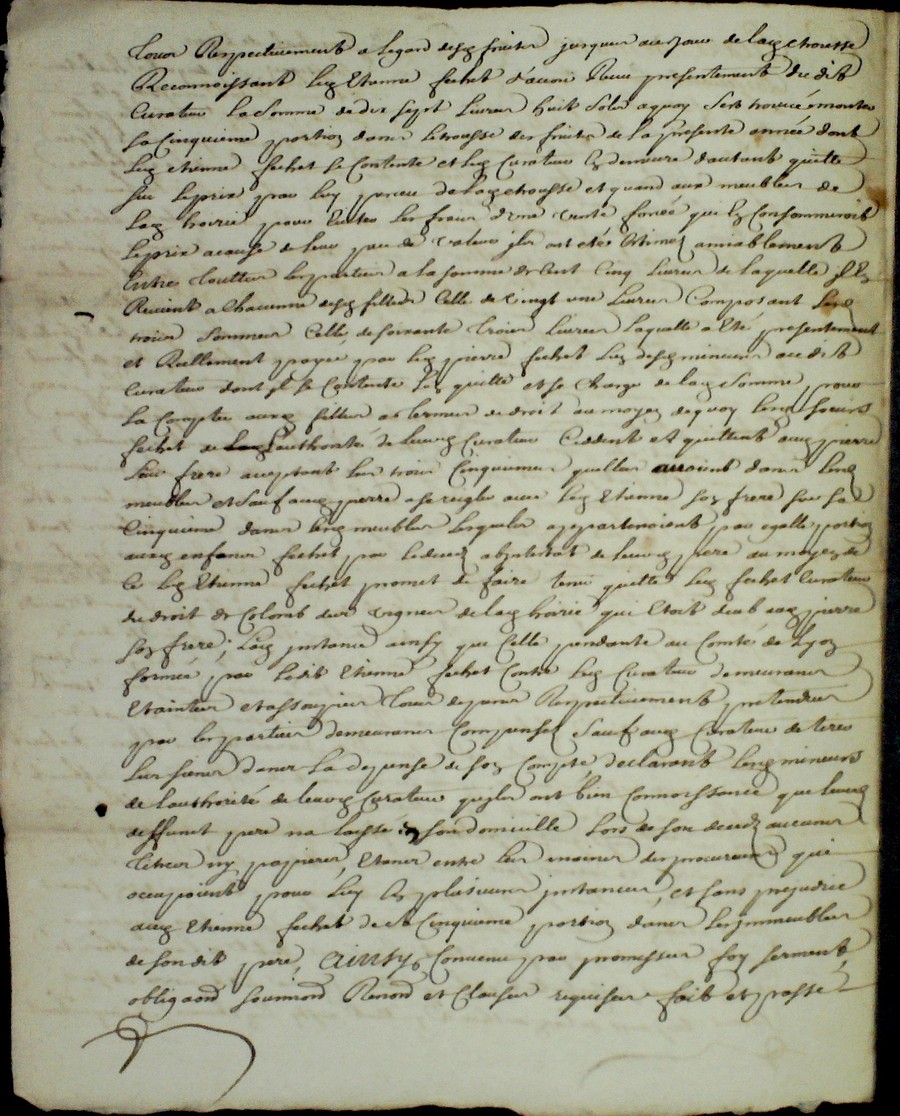 tous Respectivement a legard desd fruits jusques au jour de lad chousse
Reconnoissant led Etienne fechet d'avoir Receu presentement du dit
Curateur la somme de dix sept Livres huit sols aquoy sest trouvé monter
sa Cinquieme portion dans la trousse des fruits de la presente année dont
led etienne fechet se Contente et led Curateur en demeure dautant quitte
sur le prix par luy percu de lad chousse et quand aux meubles de
lad hoirie pour Eviter les frais d'une vente forcée qui en Consommeroit
le prix acause de leur peu de valeur ils ont eté Estimés amiablement
Entre touttes les parties a la somme de Cent Cinq Livres de laquelle Il en
Revient a Chacune desd filles Celle de vingt une Livres Composant Les
trois sommes Celle de soixante trois Livres laquelle a Eté presentement
et Reellement payée par led pierre fechet lun desd mineurs audit
Curateur dont il se Contente l'en quitte et se Charge de lad somme pour
la Compter auxd filles as termes de droit au moyen de quoy lesd soeurs
fechet de Lauthorité de leurd Curateur Cedent et quittent aud pierre
Leur frere aceptant les trois Cinquiemes quelles avoient dans lesd
meubles et sauf aud pierre a se regler avec led Etienne son frere sur sa
Cinquieme dans lesd meubles lesquels appartenoient par egalle portion
auxd enfans fechet par le deced abintestat de leurd pere au moyen de
Ce led Etienne fechet promet de faire tenir quitte led fechet Curateur
du droit de Colomb des vignes de lad hoirie qui Etoit du aud pierre
son frere; Lad instance ainsy que Celle pendante au Comté de Lyon
formée par ledit Etienne fechet Contre led Curateur demeurans
Etaintes et assoupies tous depans Respectivement pretendus
par les parties demeurans Compensés sauf aud Curateur de tirer
les siens dans la depense de son Compte declarant lesd mineurs
de lauthorité de leurd Curateur quils ont bien Connoissance que leurd
deffunct pere na laissé en son domicille lors de son deced aucuns
titres ny papiers, Etans entre les mains des procureurs qui
occupoient pour luy en plusieurs instances, et sans prejudice
aud Etienne fechet de sa Cinquieme portion dans les immeubles
de son dit pere, Ainsy Convenu par promesses foy serment
obligaõns soumioñ Renoñ et Clauses requises fait et passé